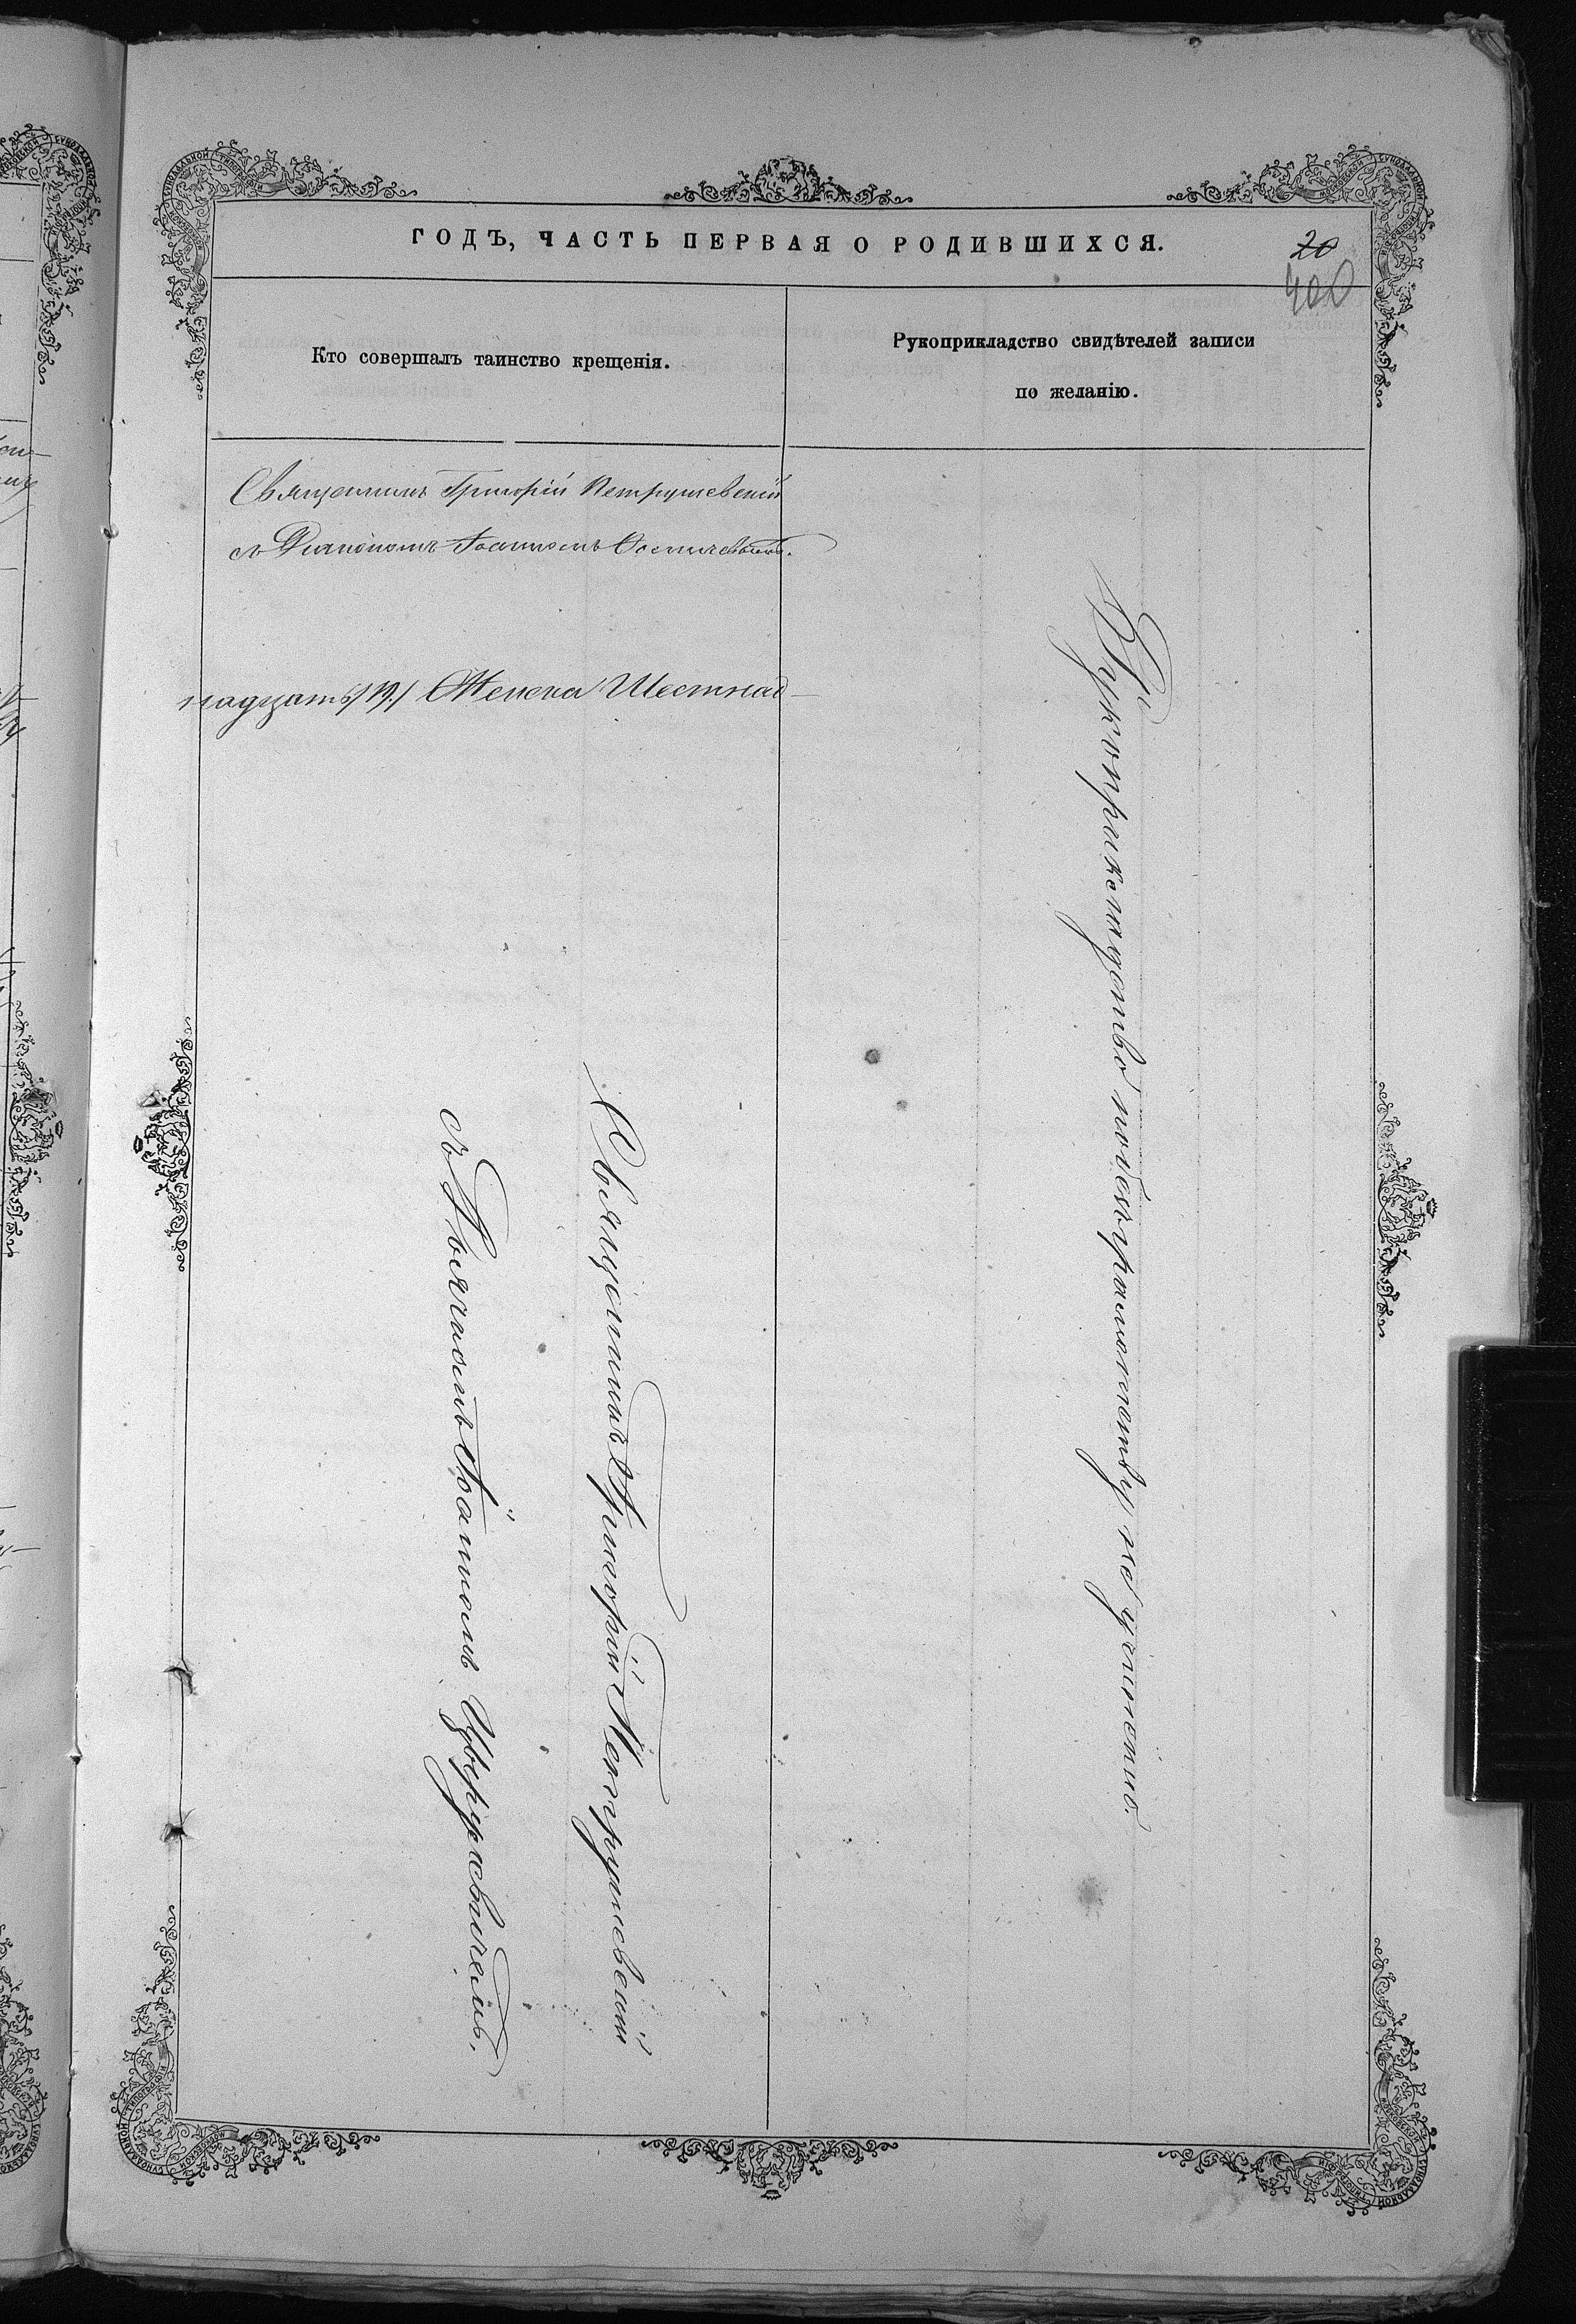 ГОДЪ, ЧАСТЬ ПЕРВАЯ О РОДИВШИХСЯ.
20
400
Кто совершалъ таинство крещенія.
Рукоприкладство свидѣтелей записи
по желанію.
Священникъ Григорій Петрушевскій
съ Діакономъ Іоанномъ
надцать Женска Шестнад-
Священникъ Григорій Петрушевскій
съ Іоанномъ
Рукоприкладство по безграмотству не учинено.